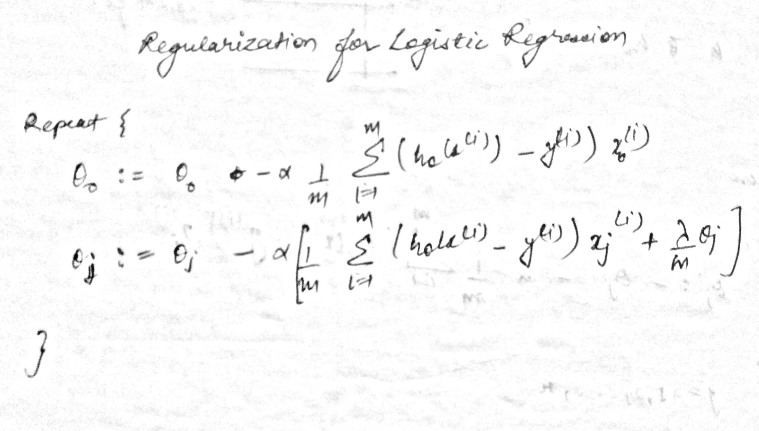 Regularization for Logistic Regression
Repeat {
θ₀ := θ₀ - α 1/m Σ_{i=1}^{m} (h_θ(x^{(i)}) - y^{(i)}) x₀^{(i)}
θⱼ := θⱼ - α [1/m Σ_{i=1}^{m} (h_θ(x^{(i)} - y^{(i)}) xⱼ^{(i)} + λ/m θⱼ]
}